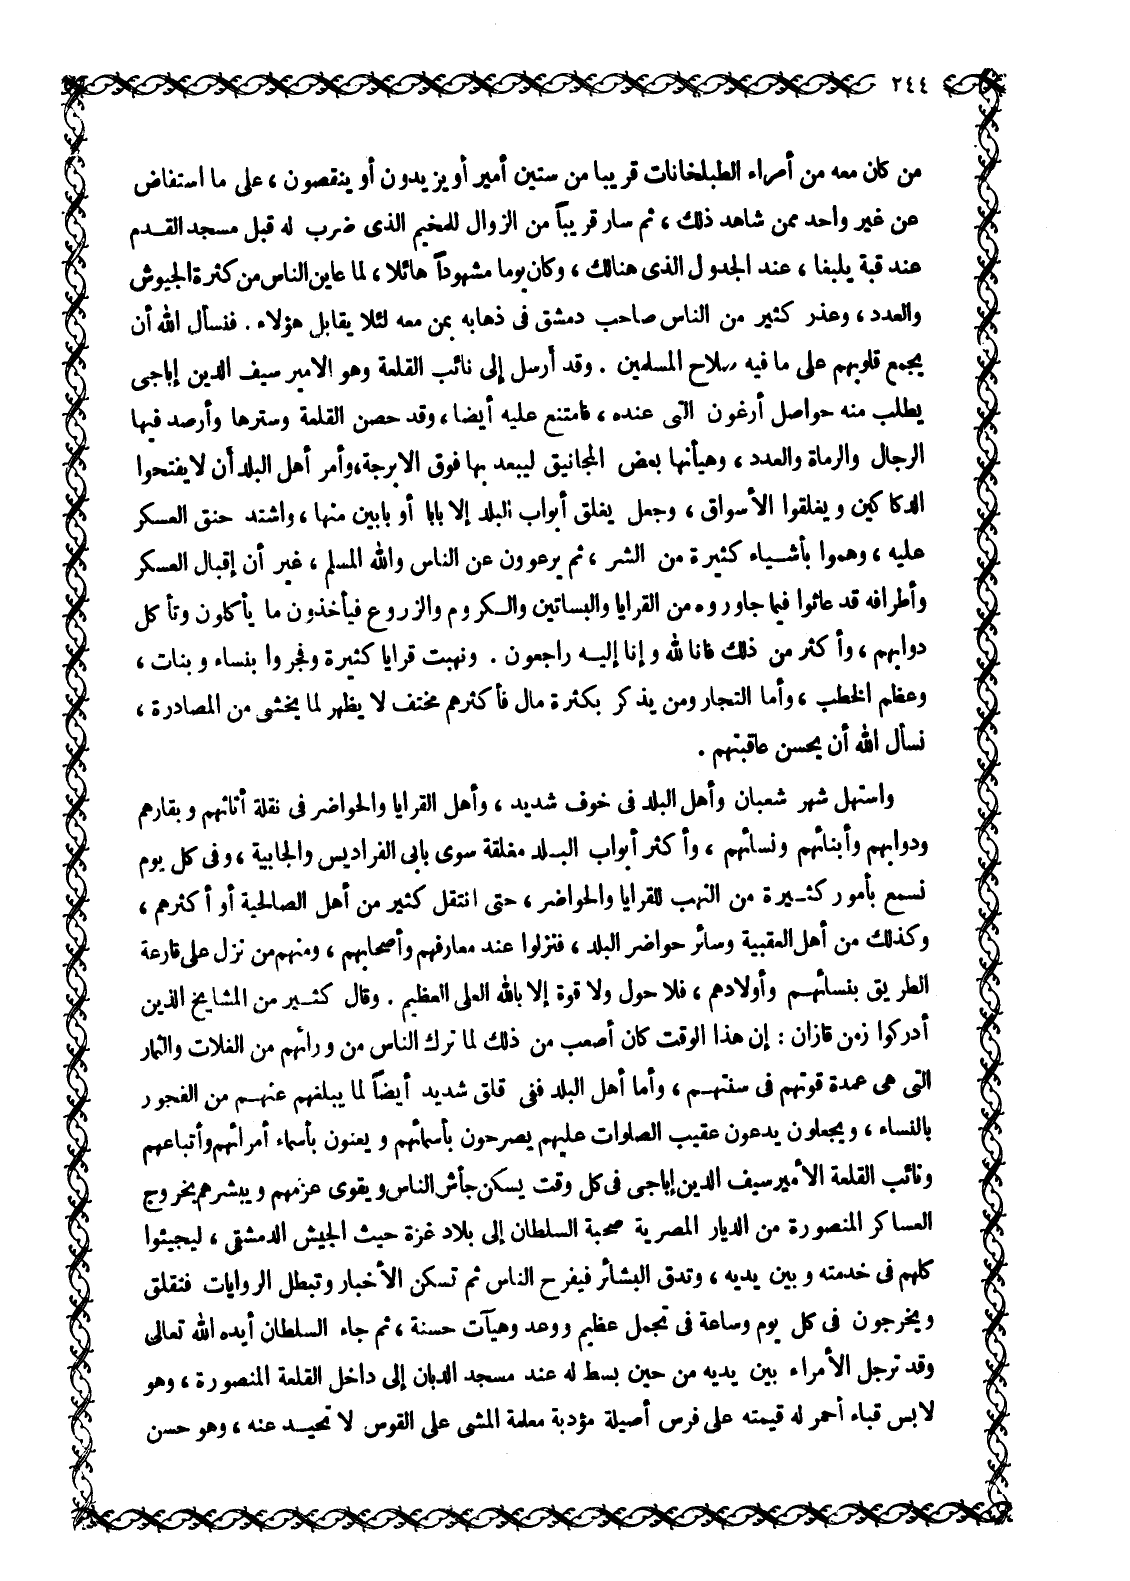 ٢٤٤
من كان معه من أمراء الطبلخانات قريبا من ستين أمير أو يزيدون أو ينقصون ، على ما استفاض
عن غير واحد ممن شاهد ذلك ، ثم سار قريباً من الزوال للمخيم الذى ضرب له قبل مسجد القدم
عند قبة يلبغا ، عند الجدول الذى هنالك ، وكان يوما مشهوداً هائلا ، لما عاين الناس من كثرة الجيوش
والعدد ، وعذر كثير من الناس صاحب دمشق فى ذهابه بمن معه لئلا يقابل هؤلاء . فنسأل الله أن
يجمع قلوبهم على ما فيه صلاح المسلمين . وقد أرسل إلى نائب القلعة وهو الامير سيف الدين إياجى
يطلب منه حواصل أرغون التى عنده ، فامتنع عليه أيضا ، وقد حصن القلعة وسترها وأرصد فيها
الرجال والرماة والعدد ، وهيأ بها بعض المجانيق ليبعد بها فوق الابرجة ، وأمر أهل البلد أن لا يفتحوا
الدكاكين ويغلقوا الأسواق ، وجعل يغلق أبواب البلد إلا بابا أو بابين منها ، واشتد حنق العسكر
عليه ، وهموا بأشياء كثيرة من الشر ، ثم يرعوون عن الناس والله المسلم ، غير أن إقبال العسكر
وأطرافه قد عاثوا فيما جاوروه من القرايا والبساتين والكروم والزروع فيأخذون ما يأكلون وتأكل
دوابهم ، وأكثر من ذلك فانا لله وإنا إليه راجعون . ونهبت قرايا كثيرة وفجروا بنساء وبنات ،
وعظم الخطب ، وأما التجار ومن يذكر بكثرة مال فأكثرهم مختف لا يظهر لما يخشى من المصادرة ،
نسأل الله أن يحسن عاقبتهم .
واستهل شهر شعبان وأهل البلد فى خوف شديد ، وأهل القرايا والحواضر فى نقلة أثاثهم وبقارهم
ودوابهم وأبنائهم ونسائهم ، وأكثر أبواب البلد مغلقة سوى بابى الفراديس والجابية ، وفى كل يوم
نسمع بأمور كثيرة من النهب للقرايا والحواضر ، حتى انتقل كثير من أهل الصالحية أو أكثرهم ،
وكذلك من أهل العقيبة وسائر حواضر البلد ، فنزلوا عند معارفهم وأصحابهم ، ومنهم من نزل على قارعة
الطريق بنسائهم وأولادهم ، فلا حول ولا قوة إلا بالله العلى العظيم . وقال كثير من المشايخ الذين
أدركوا زمن قازان : إن هذا الوقت كان أصعب من ذلك لما ترك الناس من ورائهم من الغلات والثمار
التى هى عمدة قوتهم فى سنتهم ، وأما أهل البلد ففى قلق شديد أيضاً لما يبلغهم عنهم من الفجور
بالنساء ، ويجعلون يدعون عقيب الصلوات عليهم يصرحون بأسمائهم ويعنون بأسماء أمرائهم وأتباعهم
ونائب القلعة الأمير سيف الدين إياجى فى كل وقت يسكن جأش الناس ويقوى عزمهم ويبشرهم بخروج
العساكر المنصورة من الديار المصرية صحبة السلطان إلى بلاد غزة حيث الجيش الدمشقى ، ليجيئوا
كلهم فى خدمته وبين يديه ، وتدق البشائر فيفرح الناس ثم تسكن الأخبار وتبطل الروايات فتقلق
ويخرجون فى كل يوم وساعة فى تجمل عظيم ووعد وهيآت حسنة ، ثم جاء السلطان أيده الله تعالى
وقد ترجل الأمراء بين يديه من حين بسط له عند مسجد الدبان إلى داخل القلعة المنصورة ، وهو
لابس قباء أحمر له قيمته على فرس أصيلة مؤدبة معلمة المشى على القوس لا تحيد عنه ، وهو حسن